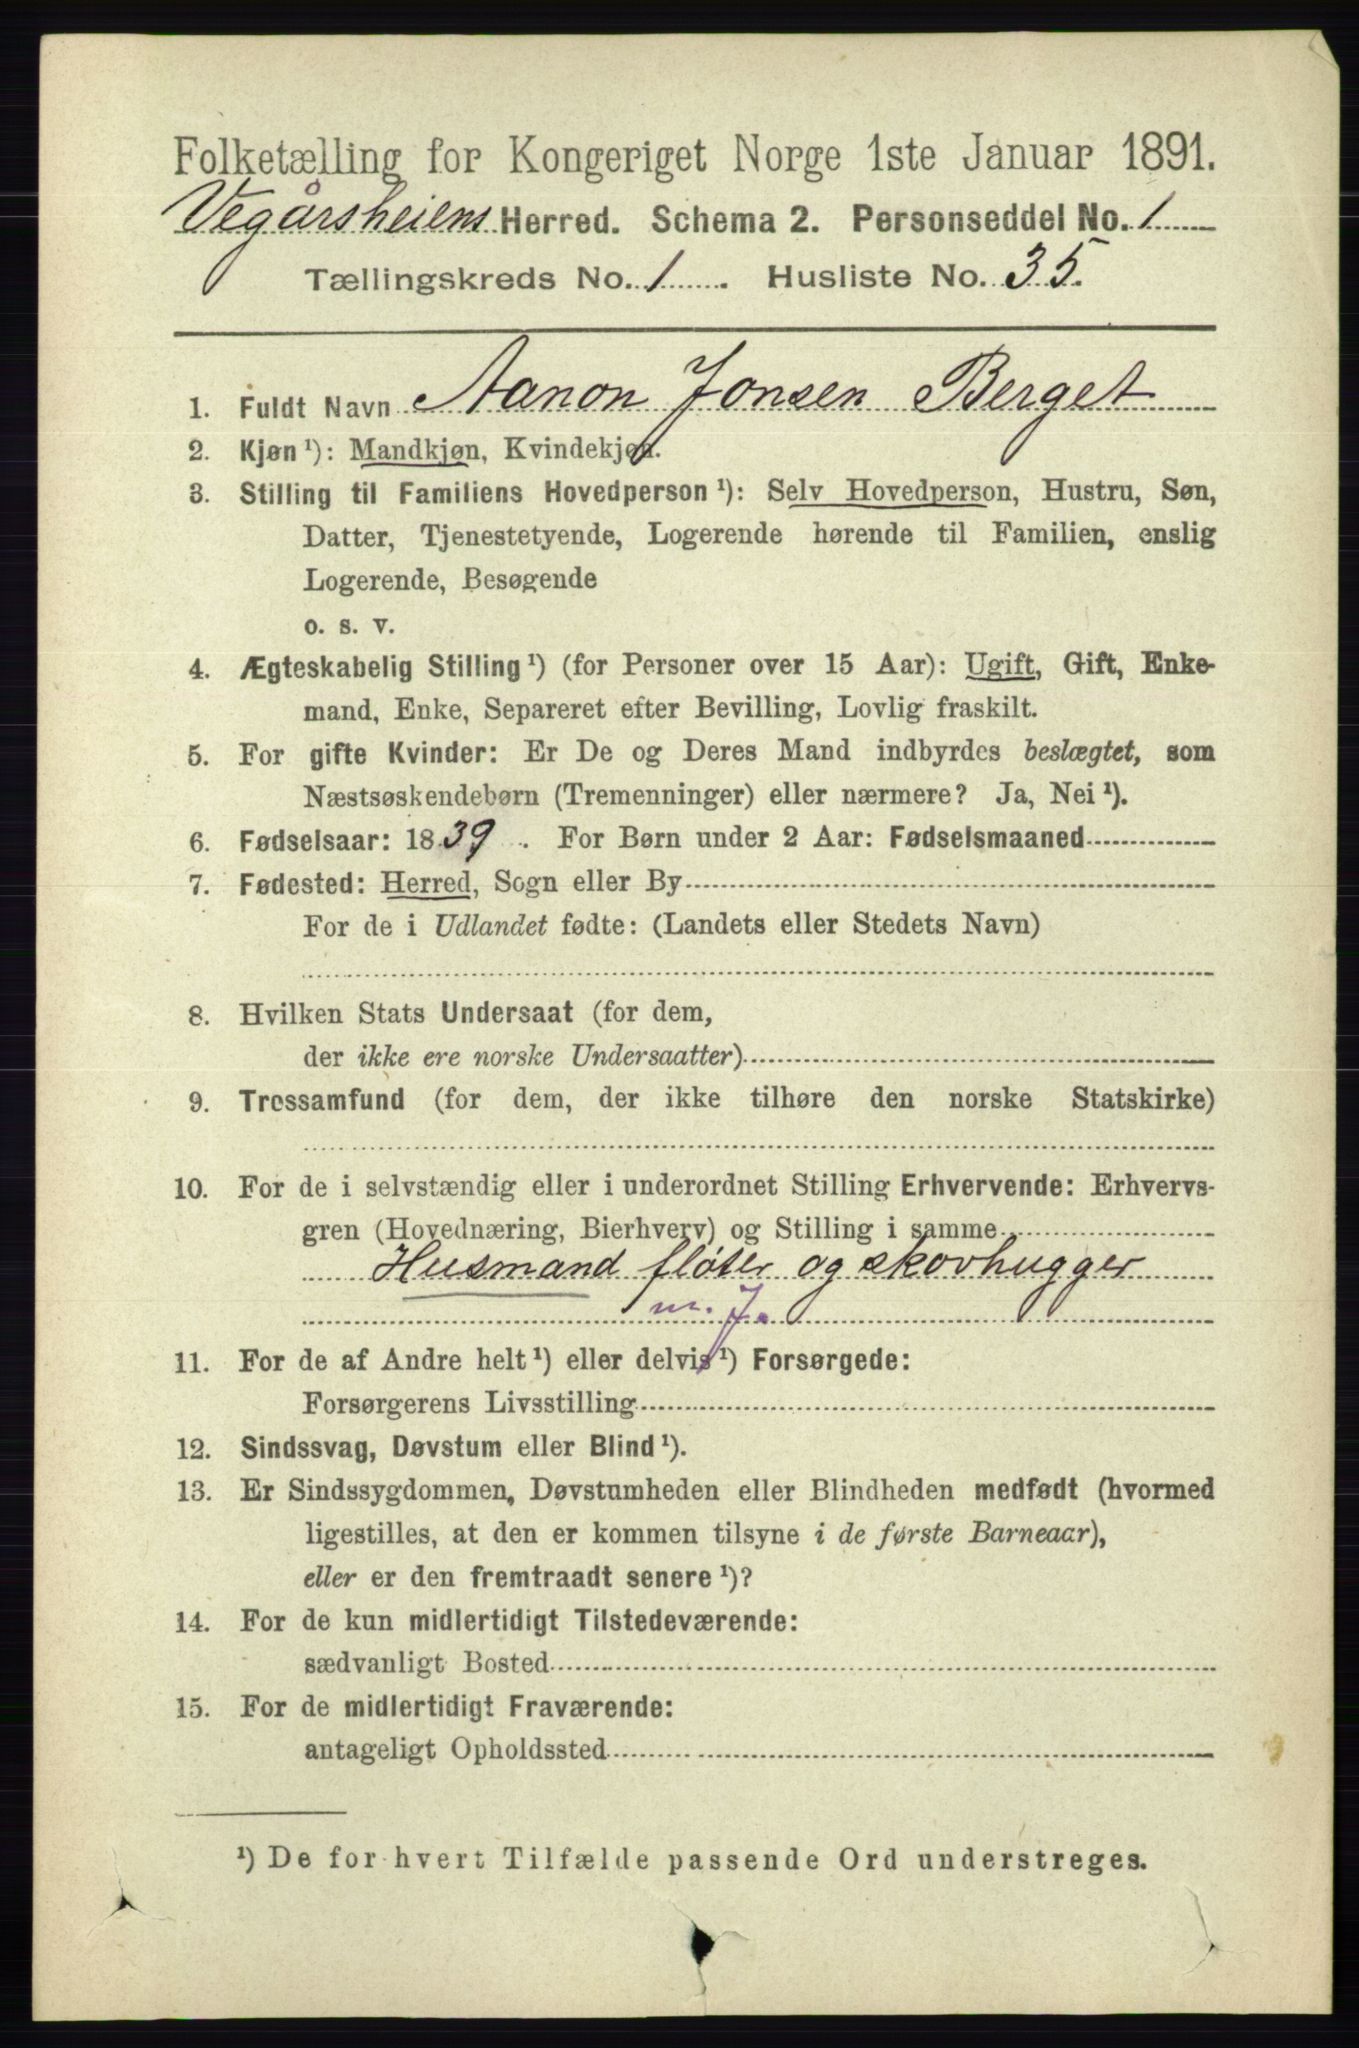 Folketælling for Kongeriget Norge 1ste Januar 1891.
Vegårsheiens Herred. Schema 2. Personseddel No. 1
Tællingskreds No. 1. Husliste No. 35.
1. Fuldt Navn Aanon Jonsen Berget
2. Kjøn ¹): Mandkjøn, Kvindekjøn.
3. Stilling til Familiens Hovedperson ¹): Selv Hovedperson, Hustru, Søn,
Datter, Tjenestetyende, Logerende hørende til Familien, enslig
Logerende, Besøgende
o. s. v.
4. Ægteskabelig Stilling ¹) (for Personer over 15 Aar): Ugift, Gift, Enke-
mand, Enke, Separeret efter Bevilling, Lovlig fraskilt.
5. For gifte Kvinder: Er De og Deres Mand indbyrdes beslægtet, som
Næstsøskendebørn (Tremenninger) eller nærmere? Ja, Nei ¹).
6. Fødselsaar: 1839. For Børn under 2 Aar: Fødselsmaaned
7. Fødested: Herred, Sogn eller By
For de i Udlandet fødte: (Landets eller Stedets Navn)
8. Hvilken Stats Undersaat (for dem,
der ikke ere norske Undersaatter)
9. Trossamfund (for dem, der ikke tilhøre den norske Statskirke)
10. For de i selvstændig eller i underordnet Stilling Erhvervende: Erhvervs-
gren (Hovednæring, Bierhverv) og Stilling i samme
Husmand fløter og skovhugger
m. J.
11. For de af Andre helt ¹) eller delvis ¹) Forsørgede:
Forsørgerens Livsstilling
12. Sindssvag, Døvstum eller Blind ¹).
13. Er Sindssygdommen, Døvstumheden eller Blindheden medfødt (hvormed
ligestilles, at den er kommen tilsyne i de første Barneaar),
eller er den fremtraadt senere ¹)?
14. For de kun midlertidigt Tilstedeværende:
sædvanligt Bosted
15. For de midlertidigt Fraværende:
antageligt Opholdssted
¹) De for hvert Tilfælde passende Ord understreges.